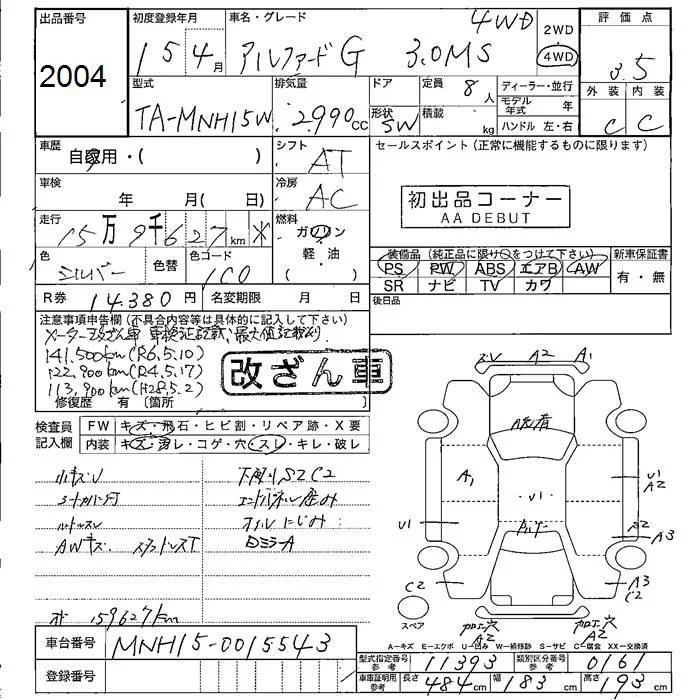 出品番号
2004
初度登録年月
15 4月
車名・グレード
アルファード G 3.0MS
4WD
2WD
4WD
評価点
3.5
外装 内装
C C
型式
TA-MNH15W
排気量
2990cc
ドア
形状 SW
定員 8人
積載 kg
ディーラー・並行
モデル年式 年
ハンドル 左・右
車歴
自家用・( )
シフト
AT
セールスポイント(正常に機能するものに限ります)
車検
年 月( 日)
冷房
AC
初出品コーナー
AA DEBUT
走行
15万9千627km *
燃料
ガソリン
軽・油
( )
色
シルバー
色替
色コード
1C0
装備品(純正品に限り○をつけて下さい)
PS PW ABS エアB AW
SR ナビ TV カワ
新車保証書
有・無
R券 14,380円
名変期限 月 日
後日品
注意事項申告欄(不具合内容等は具体的に記入して下さい)
メーター改ざん車 車検証記載最大値記載あり
141,500km(R6.5.10)
122,900km(R4.5.17)
113,900km(H28.5.2)
改ざん車
修復歴 有 〔箇所 〕
検査員記入欄
FW キズ・飛石・ヒビ割・リペア跡・X要
内装 キズ・汚レ・コゲ・穴・スレ・キレ・破レ
小キズU
下廻りSZC2
シートカバー付
エンドパネル歪み
ハンドルスレ
オイルにじみ
AWキズ スタッドレスT
DミラーA
159627km
車台番号
MNH15-0015543
登録番号
ズレ A2 A1
A1
U1
U1
U1
A2
A2
A3
A3
C2
C2
スペア
加工穴
A2
加工穴
A2
A-キズ E-エクボ U-凹み W-補修跡 S-サビ C-腐食 XX-交換済
型式指定番号参考 11393
類別区分番号参考 0161
車庫証明用参考 長さ 484cm 幅 183cm 高さ 193cm